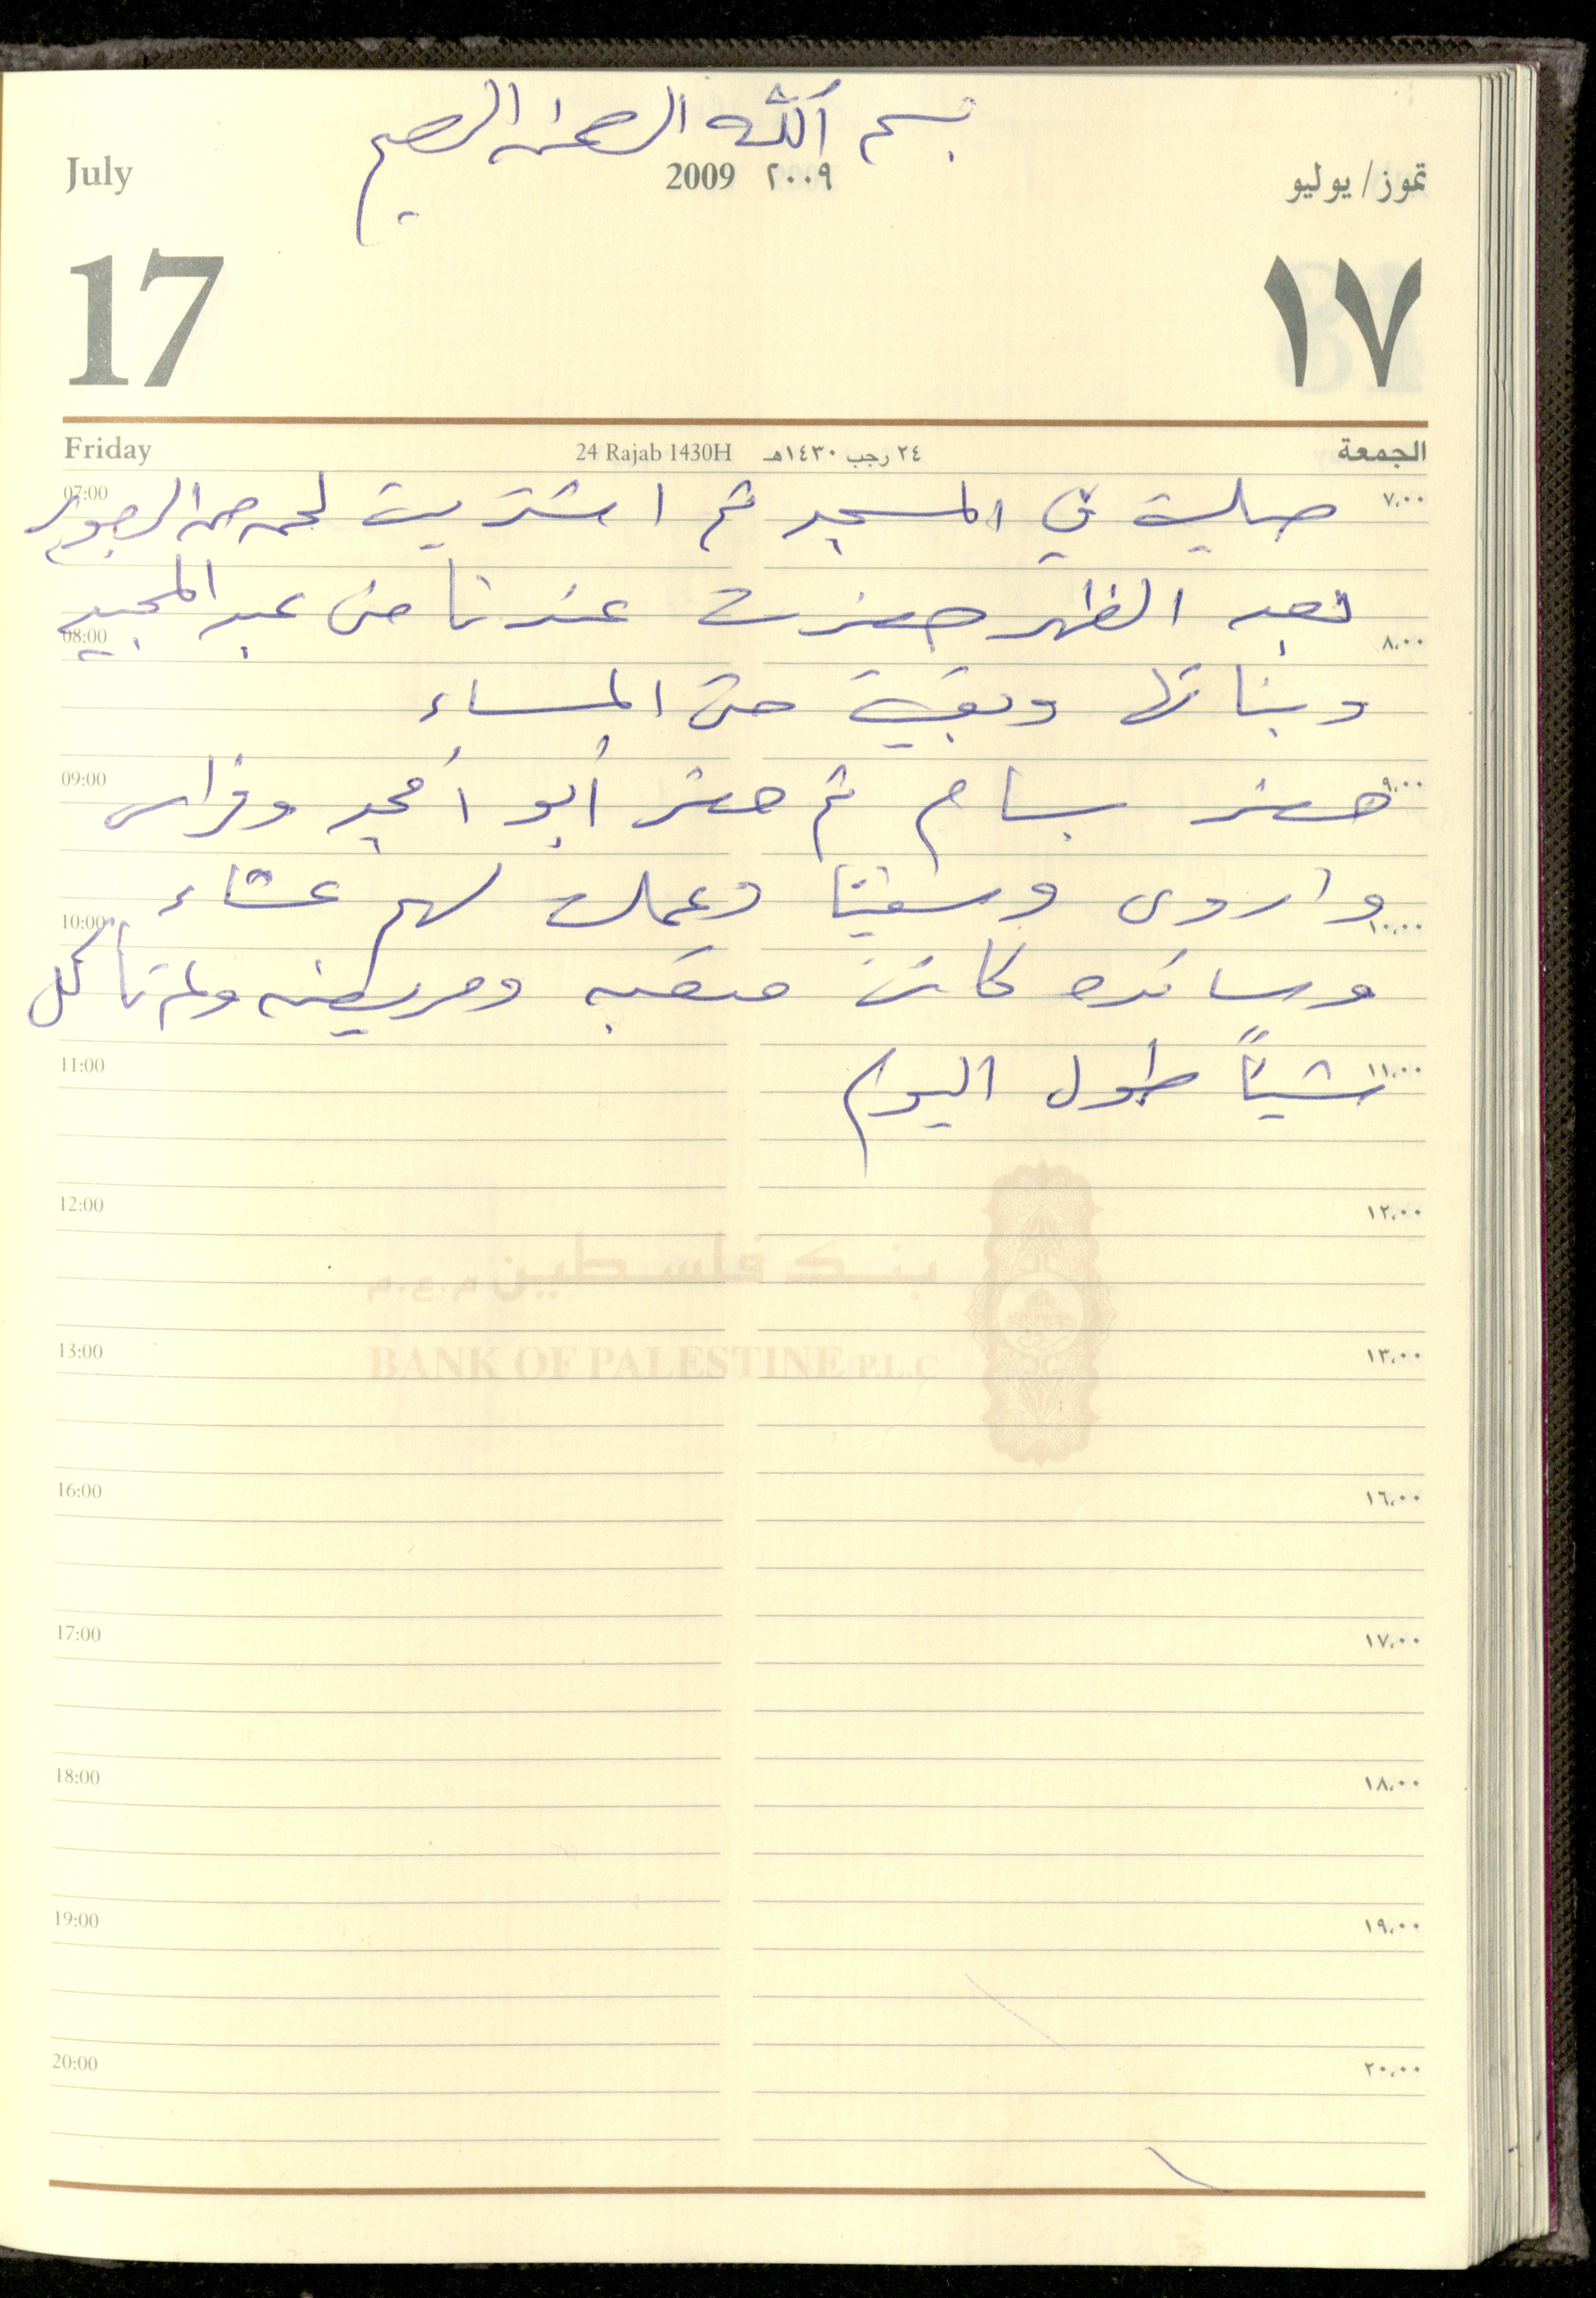 بسم الله الرحمن الرحيم
July 2009 ٢٠٠٩ تموز/يوليو
17 ١٧
Friday 24 Rajab 1430H ٢٤ رجب ١٤٣٠هـ الجمعة
07:00 ٧،٠٠
صليت في المسجد ثم اشتريت لحمه من
بعد الظهر حضرت عندنا منى عبد المجيد
08:00 ٨،٠٠
وبناتها وبقيت حتى المساء
09:00 ٩،٠٠
حضر بسام ثم حضر أبو أمجد وفراس
واروى وعملت لهم عشاء
10:00 ١٠،٠٠
وسائده كانت متعبه ومريضه ولم تأكل
11:00 ١١،٠٠
شيئاً طول اليوم
12:00 ١٢،٠٠
بنك فلسطين م.ع.م
13:00 ١٣،٠٠
BANK OF PALESTINE P.L.C
16:00 ١٦،٠٠
17:00 ١٧،٠٠
18:00 ١٨،٠٠
19:00 ١٩،٠٠
20:00 ٢٠،٠٠